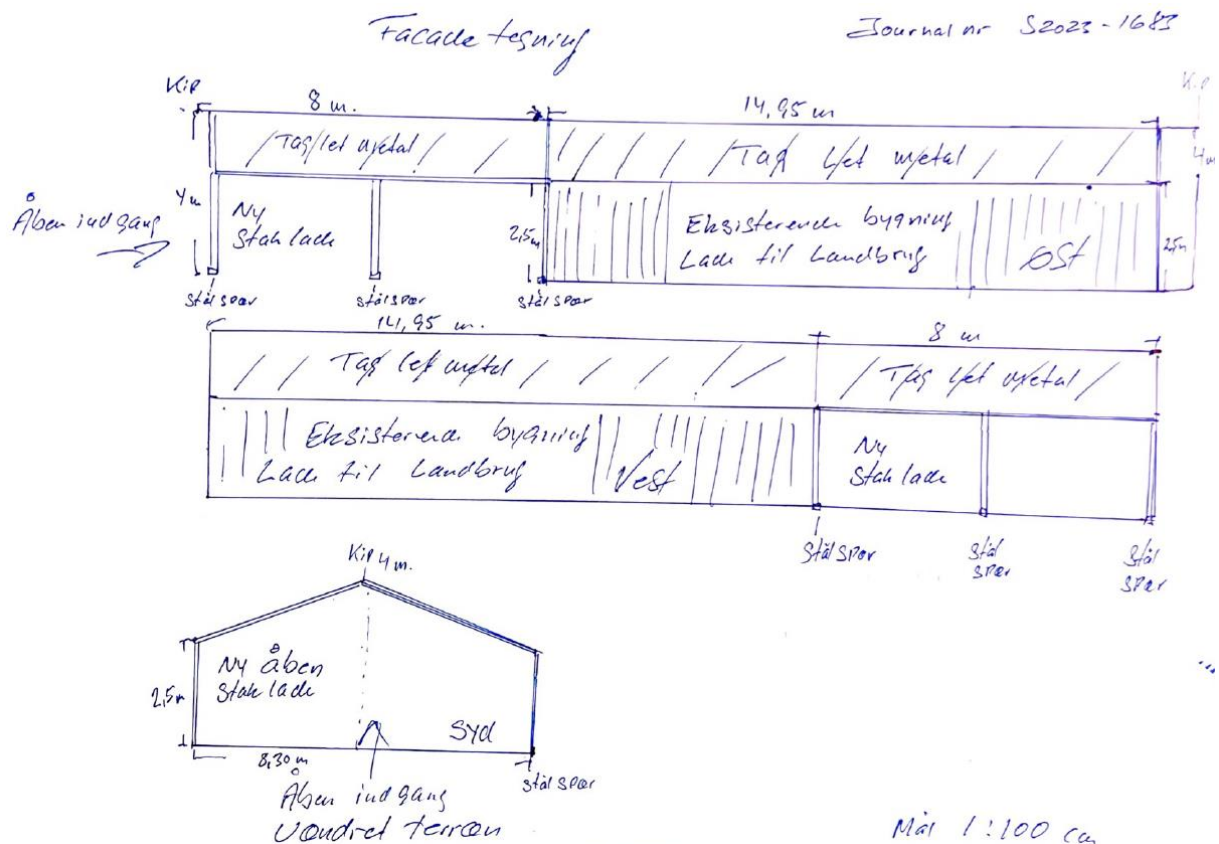 Facade tegning
Journal nr S2023-1683
Kip
8 m.
14,95 m
Kip
Tag let metal
Tag let metal
4 m
4 m
Åben indgang
Ny
Stak lade
2,5 m
Eksisterende bygning
Lade til Landbrug
Øst
2,5 m
Stål spær
Stål spær
Stål spær
14,95 m.
8 m
Tag let metal
Tag let metal
Eksisterende bygning
Lade til Landbrug
Vest
Ny
Stak lade
Stål spær
Stål
spær
Stål
spær
Kip 4 m.
Ny åben
Stak lade
2,5 m
Syd
8,30 m
Stål spær
Åben indgang
Vandret terræn
Mål 1:100 cm